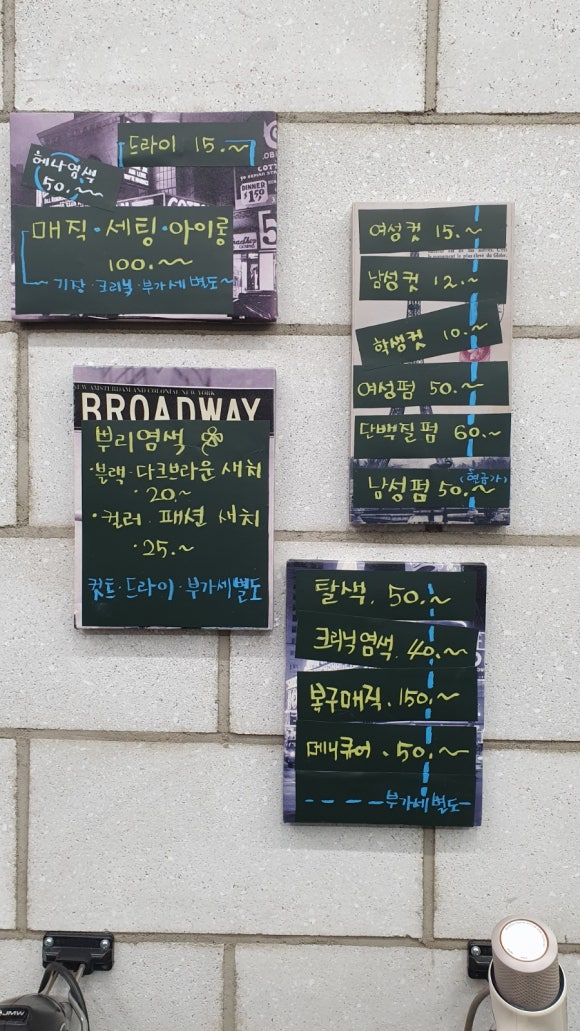 드라이 15.~
헤나염색
50.~
DINNER
$1.50
매직·세팅·아이롱
100.~
기장·크리닉·부가세별도~
여성컷 15.~
남성컷 12.~
학생컷 10.~
여성펌 50.~
단백질펌 60.~
(현금가)
남성펌 50.~
NEW AMSTERDAM AND COLONIAL NEW YORK
BROADWAY
뿌리염색
·블랙·다크브라운 새치
·20.~
·컬러·패션 새치
·25.~
컷트·드라이·부가세별도
탈색. 50.~
크리닉염색. 40.~
복구매직. 150.~
메니큐어. 50.~
부가세별도-
JMW